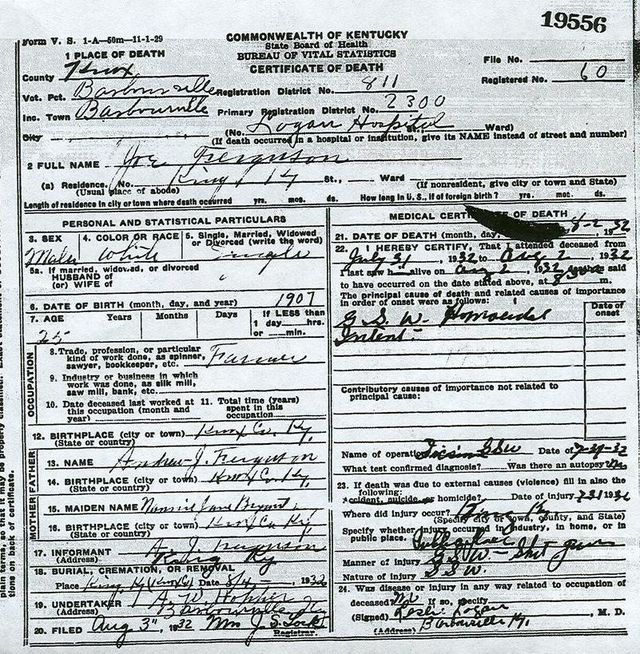 19556
Form V. S. 1-A—50m—11-1-29
COMMONWEALTH OF KENTUCKY
State Board of Health
BUREAU OF VITAL STATISTICS
CERTIFICATE OF DEATH
1 PLACE OF DEATH
File No.
County Knox
Registered No. 60
Vot. Pct. Barbourville Registration District No. 811
Inc. Town Barbourville Primary Registration District No. 2300
City (No. Logan Hospital Ward)
(If death occurred in a hospital or institution, give its NAME instead of street and number)
2 FULL NAME Joe Ferguson
(a) Residence. No. King, Ky St., Ward
(Usual place of abode) (If nonresident, give city or town and State)
Length of residence in city or town where death occurred yrs. mos. ds. How long in U. S., if of foreign birth? yrs. mos. ds.
PERSONAL AND STATISTICAL PARTICULARS
3. SEX 4. COLOR OR RACE 5. Single, Married, Widowed
or Divorced (write the word)
Male White Single
5a. If married, widowed, or divorced
HUSBAND of
(or) WIFE of
6. DATE OF BIRTH (month, day, and year) 1907
7. AGE Years Months Days If LESS than
1 day hrs.
or min.
25
OCCUPATION
8. Trade, profession, or particular
kind of work done, as spinner,
sawyer, bookkeeper, etc. Farmer
9. Industry or business in which
work was done, as silk mill,
saw mill, bank, etc.
10. Date deceased last worked at 11. Total time (years)
this occupation (month and spent in this
year) occupation
12. BIRTHPLACE (city or town) Knox Co. Ky.
(State or country)
FATHER
13. NAME Andrew J. Ferguson
14. BIRTHPLACE (city or town) Knox Co. Ky
(State or country)
MOTHER
15. MAIDEN NAME Nannie Jane Bryant
16. BIRTHPLACE (city or town) Knox Co Ky
(State or country)
17. INFORMANT Ferguson
(Address) King Ky
18. BURIAL, CREMATION, OR REMOVAL
Place King Ky Date 8/4 1932
19. UNDERTAKER A. W. Hopper
(Address) Barbourville Ky
20. FILED Aug 3", 1932 Mrs J. S. Lock
Registrar.
MEDICAL CERTIFICATE OF DEATH
21. DATE OF DEATH (month, day, 8-2 1932
22. I HEREBY CERTIFY, That I attended deceased from
July 31 1932 to Aug 2 1932
last saw h alive on Aug 2, 1932 death is said
to have occurred on the date stated above, at 8 m.
The principal cause of death and related causes of importance
in order of onset were as follows: Date of
onset
G. S. W. Homicidal
Intent.
Contributory causes of importance not related to
principal cause:
Name of operation GSW Date of
What test confirmed diagnosis? Was there an autopsy? No
23. If death was due to external causes (violence) fill in also the
following:
Accident, suicide, or homicide? Date of injury 7-31 1932
Where did injury occur? King Ky
(Specify city or town, county, and State)
Specify whether injury occurred in industry, in home, or in
public place.
Manner of injury G.S.W. - Shot gun
Nature of injury G.S.W.
24. Was disease or injury in any way related to occupation of
deceased? No If so, specify
(Signed) Logan M. D.
(Address) Barbourville Ky.